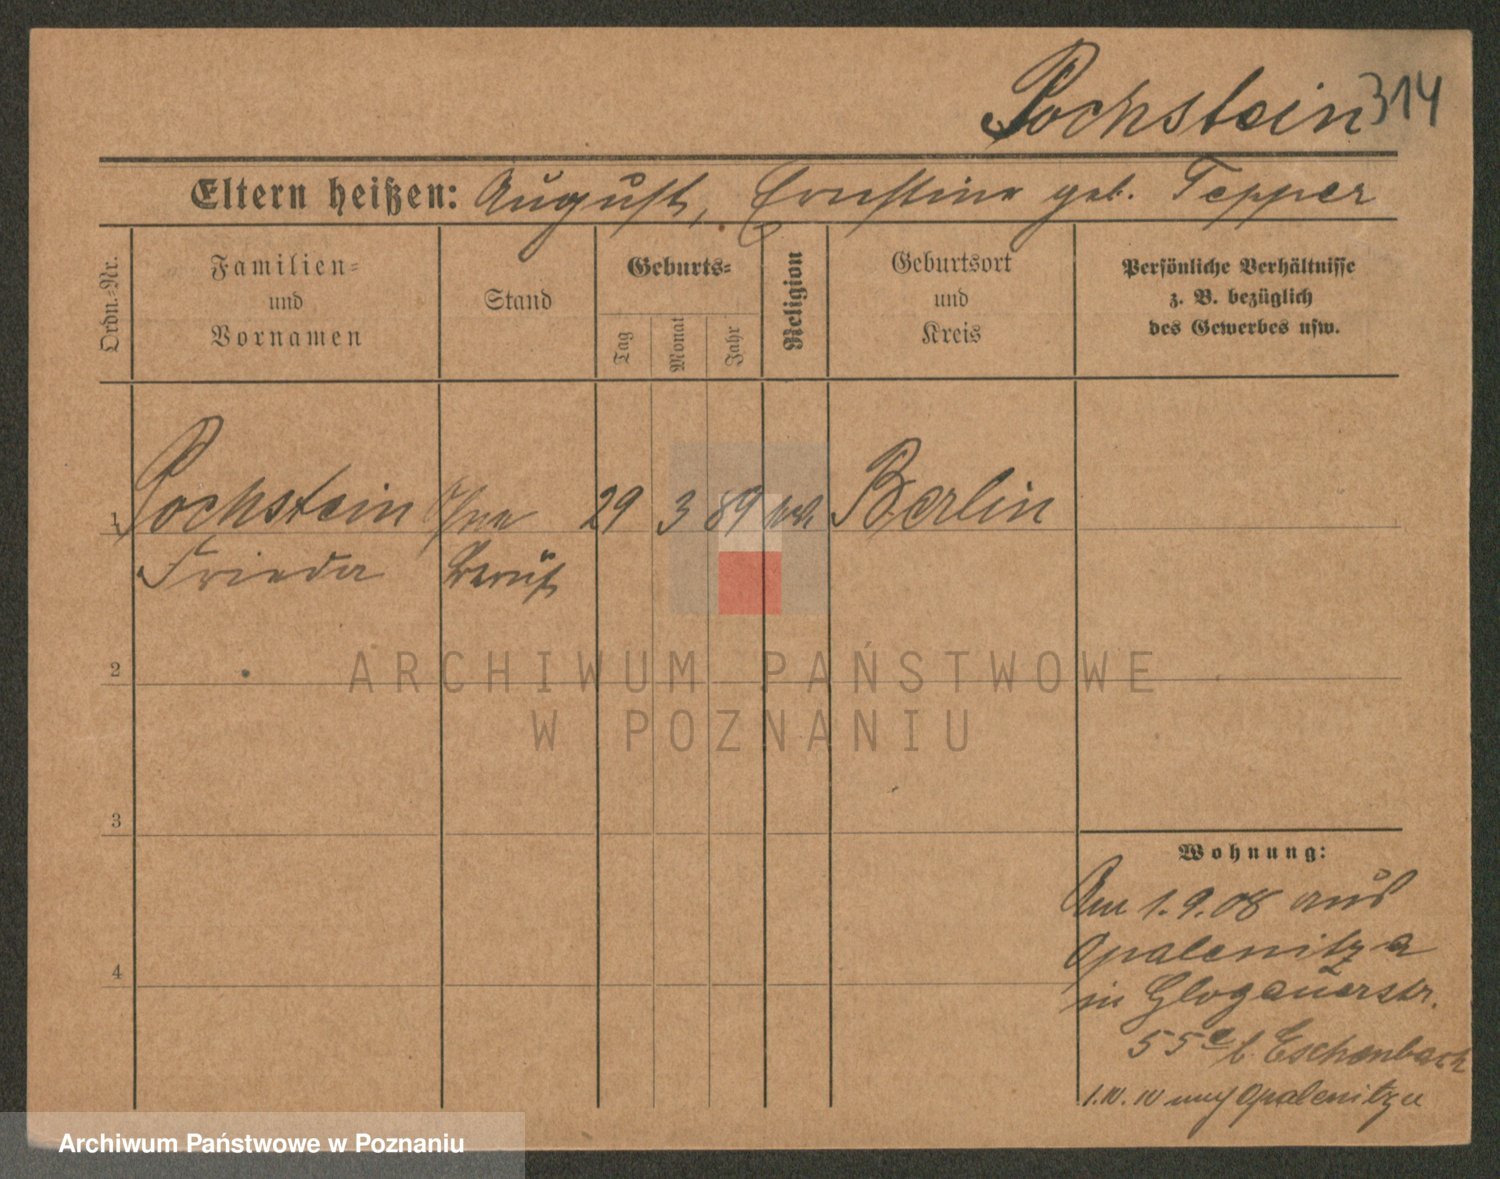 Pochstein 314
Eltern heißen: August, Ernstine geb. Tepper
Ordn.-Nr.
Familien-
und
Vornamen
Stand
Geburts-
Tag
Monat
Jahr
Religion
Geburtsort
und
Kreis
Persönliche Verhältnisse
z. B. bezüglich
des Gewerbes usw.
1 Pochstein Ohne 29 3 89 Berlin
Frieda Beruf
2
3
4
Wohnung:
Am 1.9.08 aus
Opalenitza
in Glogauerstr.
55 b. Eschenbach
nach Opalenitza
ARCHIWUM PAŃSTWOWE
W POZNANIU
Archiwum Państwowe w Poznaniu